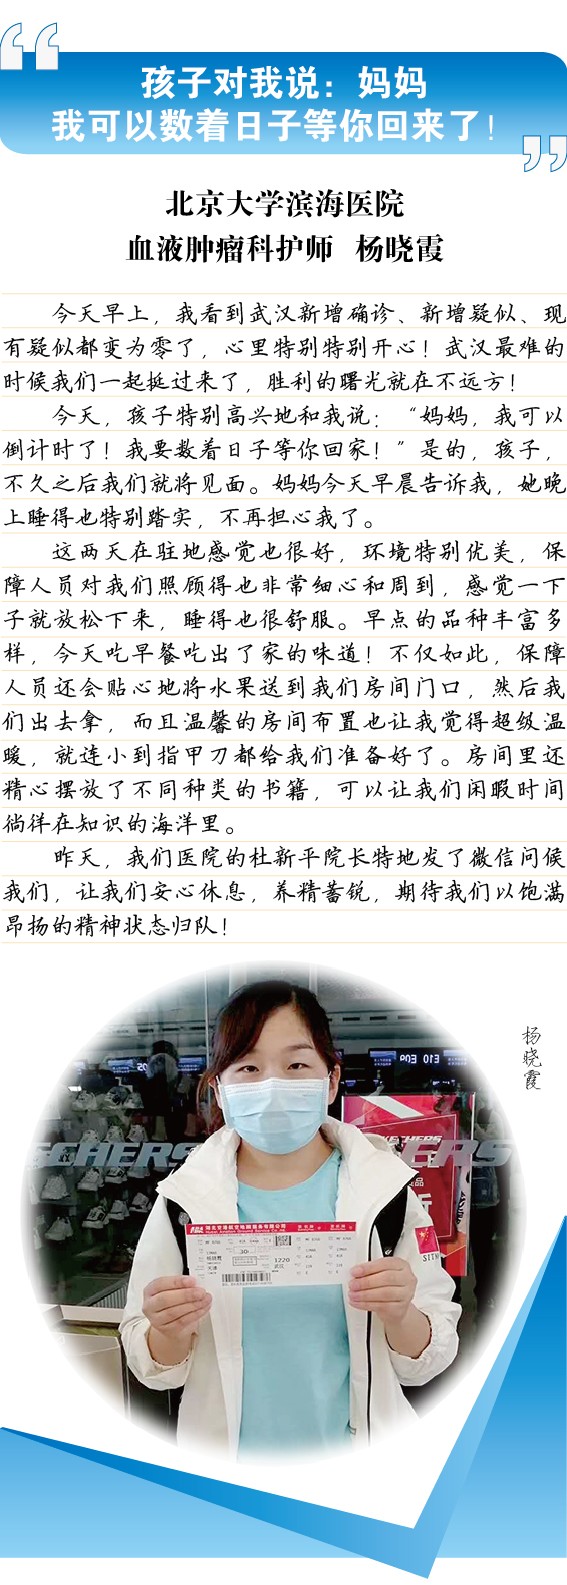 孩子对我说：妈妈
我可以数着日子等你回来了！
北京大学滨海医院
血液肿瘤科护师 杨晓霞
今天早上，我看到武汉新增确诊、新增疑似、现
有疑似都变为零了，心里特别特别开心！武汉最难的
时候我们一起挺过来了，胜利的曙光就在不远方！
今天，孩子特别高兴地和我说：“妈妈，我可以
倒计时了！我要数着日子等你回家！”是的，孩子，
不久之后我们就将见面。妈妈今天早晨告诉我，她晚
上睡得也特别踏实，不再担心我了。
这两天在驻地感觉也很好，环境特别优美，保
障人员对我们照顾得也非常细心和周到，感觉一下
子就放松下来，睡得也很舒服。早点的品种丰富多
样，今天吃早餐吃出了家的味道！不仅如此，保障
人员还会贴心地将水果送到我们房间门口，然后我
们出去拿，而且温馨的房间布置也让我觉得超级温
暖，就连小到指甲刀都给我们准备好了。房间里还
精心摆放了不同种类的书籍，可以让我们闲暇时间
徜徉在知识的海洋里。
昨天，我们医院的杜新平院长特地发了微信问候
我们，让我们安心休息，养精蓄锐，期待我们以饱满
昂扬的精神状态归队！
杨晓霞
E10 E09
KECHERS
湖北空港航空地面服务有限公司
1220